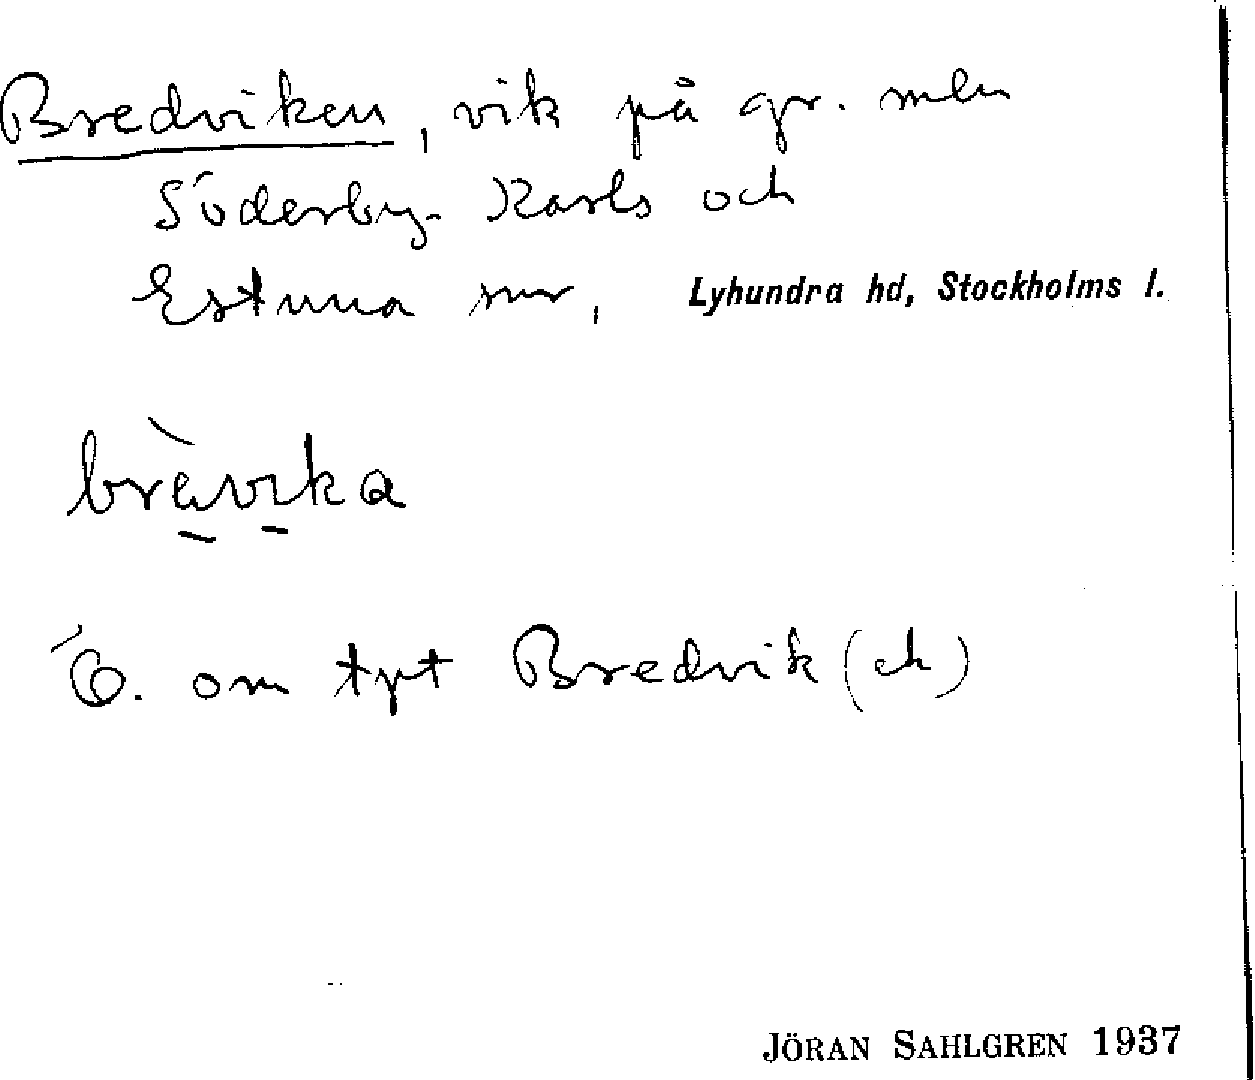 Bredviken, vik på gr. mln
Söderby-Karls och
Estuna snr, Lyhundra hd, Stockholms l.
brèvika
Ö. om tpt Bredvik (ek)
JÖRAN SAHLGREN 1937